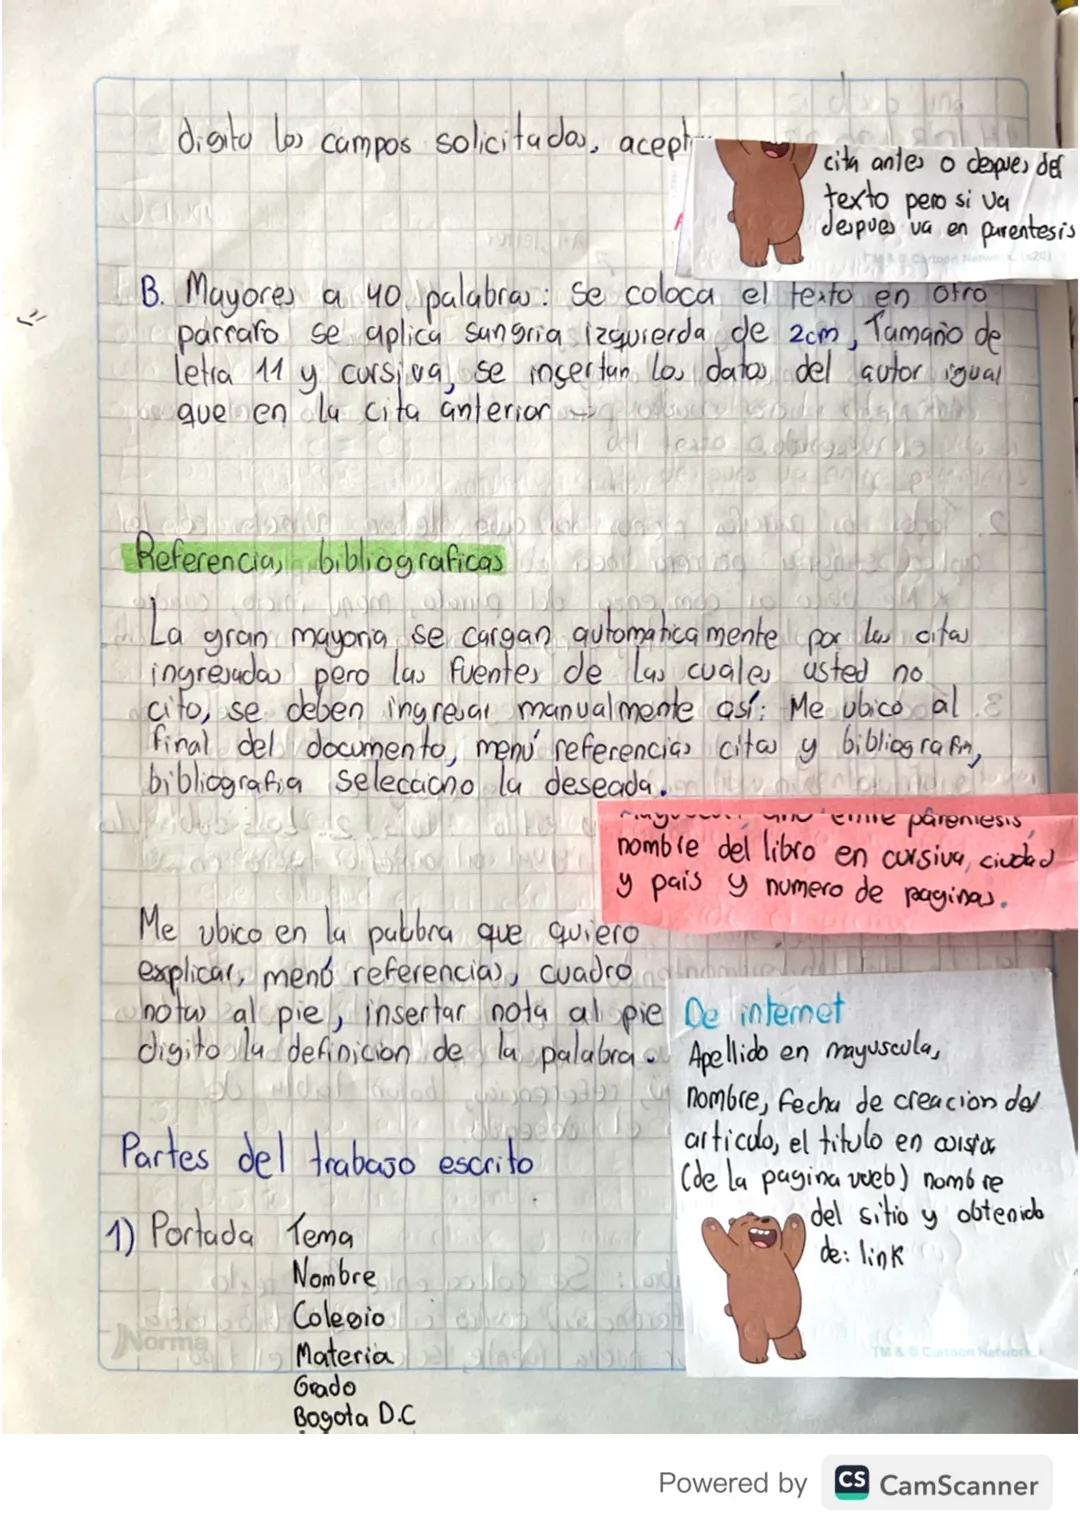 digito los campos solicitados,
cita antes o despues del
texto pero si va
despues va en parentesis
B. Mayores a 40 palabras: Se coloca el texto en otro
parrafo se aplica sangria izquierda de 2cm, Tamaño de
letra 11 y cursiva, se insertan los datos del autor igual
que en la cita anterior
Referencias bibliograficas
La gran mayoria se cargan automaticamente por las citas
ingresadas pero las fuentes de las cuales usted no
cito, se deben ingresar manualmente así: Me ubico al
final del documento, menú referencias citas y bibliografia,
bibliografia Selecciono la deseada.
entre parentesis,
nombre del libro en cursiva, ciudad
y pais y numero de paginas.
Me ubico en la palabra que quiero
explicar, menú referencias, cuadro
notas al pie, insertar nota al pie
digito la definicion de la palabra.
De internet
Apellido en mayuscula,
nombre, fecha de creacion del
articulo, el titulo en
(de la pagina web) nombre
del sitio y obtenido
de: link
Partes del trabajo escrito
1) Portada Tema
Nombre
Colegio
Materia
Grado
Bogota D.C
Norma
TM & © Cartoon Network
Powered by CS CamScanner